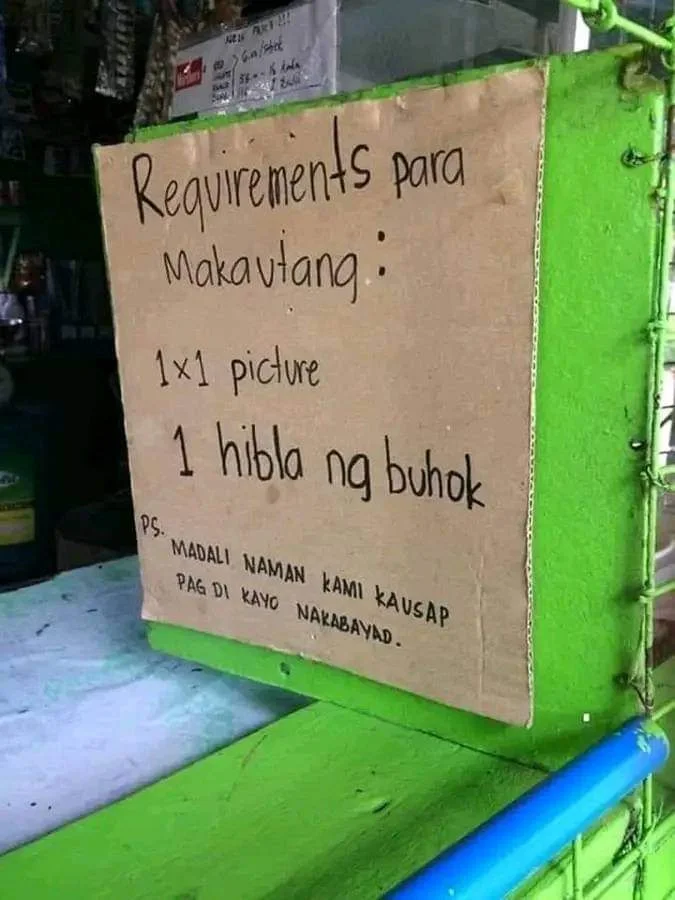 Requirements para
Makautang:
1x1 picture
1 hibla ng buhok
PS.
MADALI NAMAN KAMI KAUSAP
PAG DI KAYO NAKABAYAD.